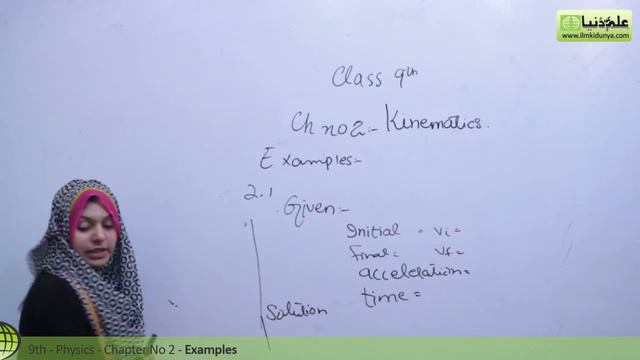 علم کی دنیا
www.ilmkidunya.com
Class 9th
Ch no 2:- Kinematics.
Examples:-
2.1
Given:-
Initial = vi =
final = vf =
acceleration =
time =
Solution
9th - Physics - Chapter No 2 - Examples